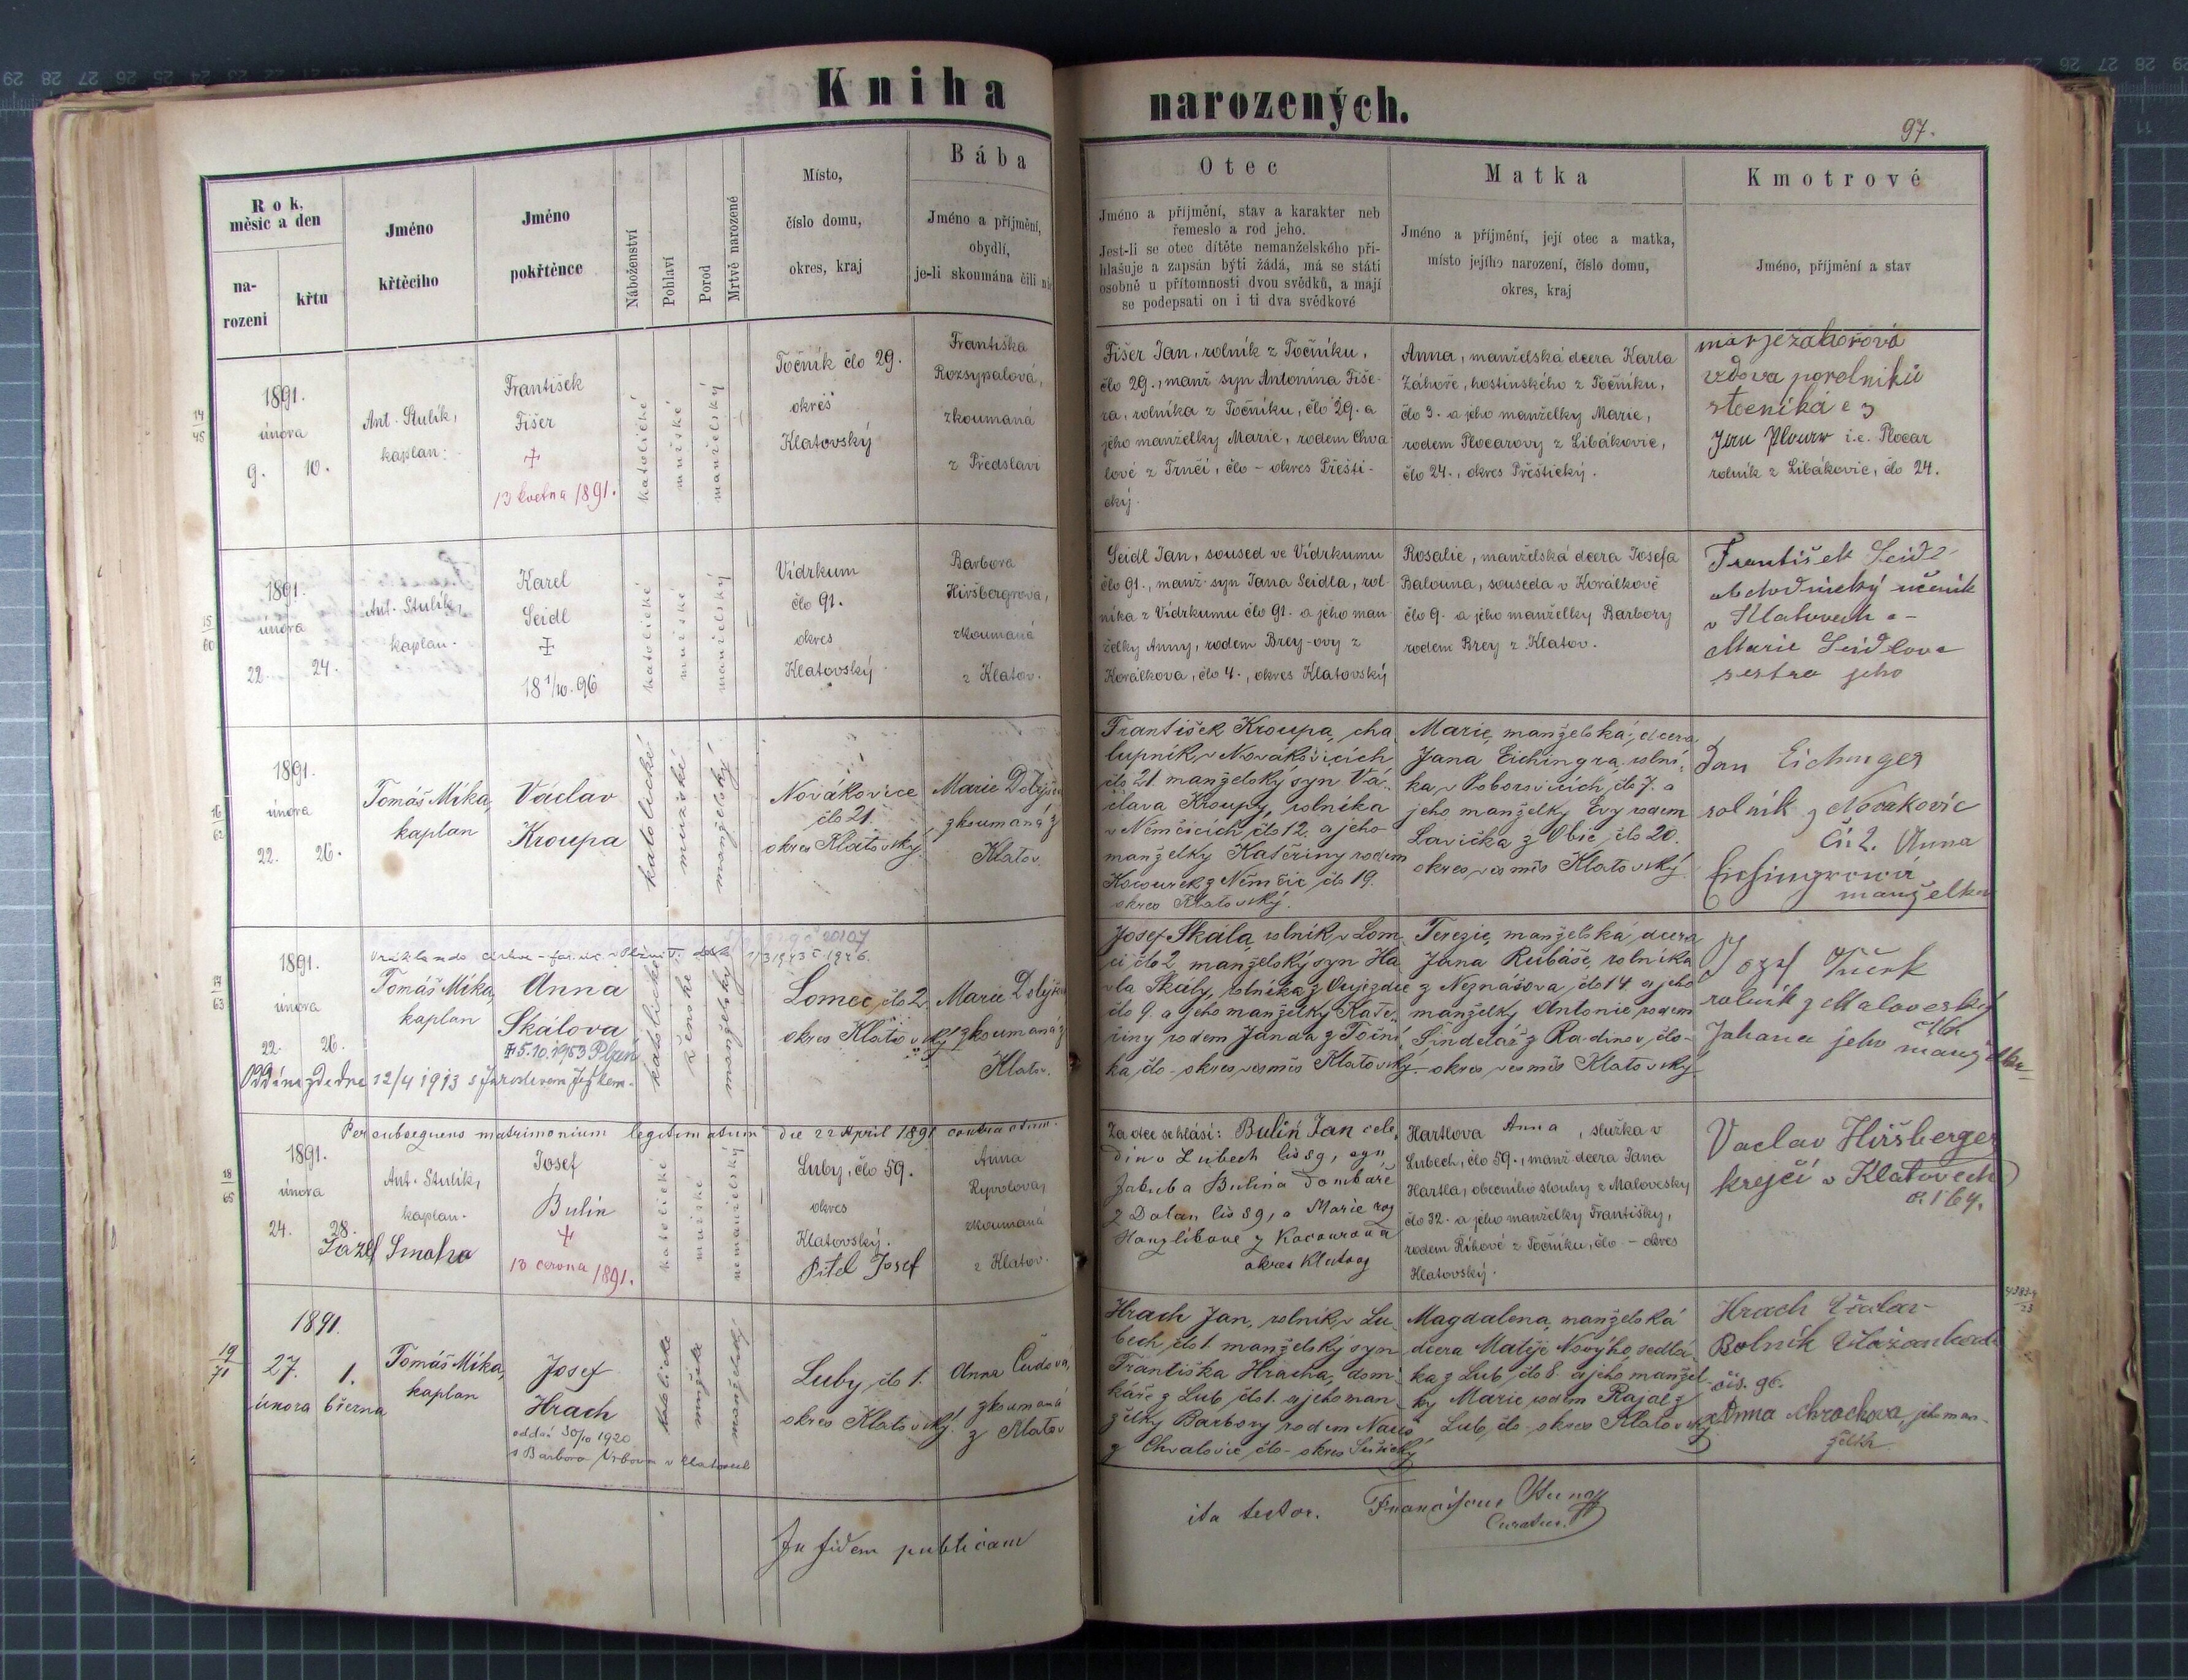 Kniha
narozených.
97.
Rok,
měsíc a den
na-
rozeni
křtu
Jméno
křtěcího
Jméno
pokřtěnce
Náboženství
Pohlaví
Porod
Mrtvě narozené
Místo,
číslo domu,
okres, kraj
Bába
Jméno a příjmění,
obydlí,
je-li skoumána čili
Otec
Jméno a příjmění, stav a karakter neb
řemeslo a rod jeho.
Jest-li se otec dítěte nemanželského při-
hlašuje a zapsán býti žádá, má se státi
osobně u přítomnosti dvou svědků, a mají
se podepsati on i ti dva svědkové
Matka
Jméno a příjmění, její otec a matka,
místo jejího narození, číslo domu,
okres, kraj
Kmotrové
Jméno, příjmění a stav
14
45
1891.
února
9. 10.
Ant. Stulík,
kaplan.
František
Fišer
13 května 1891.
katolické
mužské
manželský
Točník člo 29.
okres
Klatovský
Františka
Rozsypalová,
zkoumaná
z Předslavi
Fišer Jan, rolník z Točníku,
člo 29., manž syn Antonína Fiše-
ra, rolníka z Točníku, člo 29. a
jeho manželky Marie, rodem Chva
lové z Trnčí, člo – okres Přešti-
cký.
Anna, manželská dcera Karla
Záhoře, hostinského z Točníku,
člo 3. a jeho manželky Marie,
rodem Plocarovy z Libákovic,
člo 24., okres Přeštický.
vdova porolniků
i.e. Plocar
rolník z Libákovic, člo 24.
15
60
1891.
února
22. 24.
Ant. Stulík,
kaplan.
Karel
Seidl
18 1/10. 96
katolické
mužské
manželský
Vídrkum
člo 91.
okres
Klatovský.
Barbora
Hiršbergrova,
zkoumaná
z Klatov.
Seidl Jan, soused ve Vídrkumu
člo 91., manž. syn Jana Seidla, rol-
níka z Vídrkumu člo 91. a jeho man
želky Anny, rodem Brey-ovy z
Korálkova, člo 4., okres Klatovský
Rosalie, manželská dcera Josefa
Balouna, souseda v Korálkově
člo 9. a jeho manželky Barbory
rodem Brey z Klatov.
František Seidl
obchodnický učeník
v Klatovech a –
Marie Seidlova
sestra jeho
16
62
1891.
února
22. 26.
Tomáš Míka,
kaplan
Václav
Kroupa
katolické
mužské
manželský
Novákovice
člo 21.
okres Klatovský.
Marie
zkoumaná z
Klatov.
František Kroupa, cha
lupník v Novákovicích
člo 21. manželský syn Vá-
clava Kroupy, rolníka
v Němčicích, člo 12. a jeho
manželky Kateřiny rodem
Kocourek z Němčic, člo 19.
okres Klatovský.
Marie, manželská dcera
Jana Eichingra, rolní-
ka v Poborovicích, člo 7. a
jeho manželky Evy rodem
Lavička z Obic, člo 20.
okres vesměs Klatovský.
Jan Eichinger
rolník z Novakovic
Čís 2. Anna
manželka
17
63
1891.
února
22. 26.
Tomáš Míka,
kaplan
Anna
Skálova
5.10.1953 Plzeň
12/4 1913 s Jaroslavem
katolické
ženské
manželský
Lomec, člo 2.
okres Klatovský
Marie
zkoumaná z
Klatov.
Josef Skála, rolník v Lom
ci člo 2, manželský syn Ha
vla Skály, rolníka z Oujezdce
člo 9. a jeho manželky Kate-
řiny rodem Janda z Toční
ka, člo – okres vesměs Klatovský.
Terezie, manželská dcera
Jana Rubáše, rolníka
z Neznášova, člo 14 a jeho
manželky Antonie, rodem
Šindelář z Radinov, člo –
okres vesměs Klatovský.
Jozef Tuček
rolník z Malovesky
Johana jeho manželka
18
65
Per subsequens matrimonium legitimatum die 22 April 1891 contractum.
1891.
února
24. 28.
Ant. Stulík,
kaplan.
Jozef Smaha
Josef
Bulín
13 června 1891.
katolické
mužské
nemanželský
Luby, člo 59.
okres
Klatovský.
Pitel Josef
Anna
Rypotova,
zkoumaná
z Klatov.
Za otce se hlásí: Bulín Jan čele
dín v Lubech čís 59, syn
Jakuba Bulína domkaře
z Dolan čís 89, a Marie roz
z Kocourova
okres Klatovy
Hartlova Anna, služka v
Lubech, člo 59., manž dcera Jana
Hartla, obecního slouhy z Malovesky
člo 32. a jeho manželky Františky,
rodem Říhové z Točníku, člo – okres
Klatovský.
Vaclav Hiršberger
krejčí v Klatovech
č. 164.
19
71
1891.
27. 1.
února března
Tomáš Míka,
kaplan
Josef
Hrach
oddán 30/10 1920
s Barborou Vrbovou v Klatovech
katolické
mužské
manželský
Luby, člo 1.
okres Klatovský.
Anna Čudová,
zkoumaná
z Klatov
Hrach Jan, rolník v Lu-
bech, člo 1. manželský syn
Františka Hracha, dom-
káře z Lub, člo 1. a jeho man-
želky Barbory rodem
z Chvalovic, člo – okres Sušický.
Magdalena, manželská
dcera Matěje Nového, sedlá-
ka z Lub, člo 8. a jeho manžel-
ky Marie, rodem Rajal z
Lub, člo – okres Klatovský
Hrach
Rolník
čís. 96.
Anna Hrachova, jeho man-
želka
In fidem publicam
ita testor.